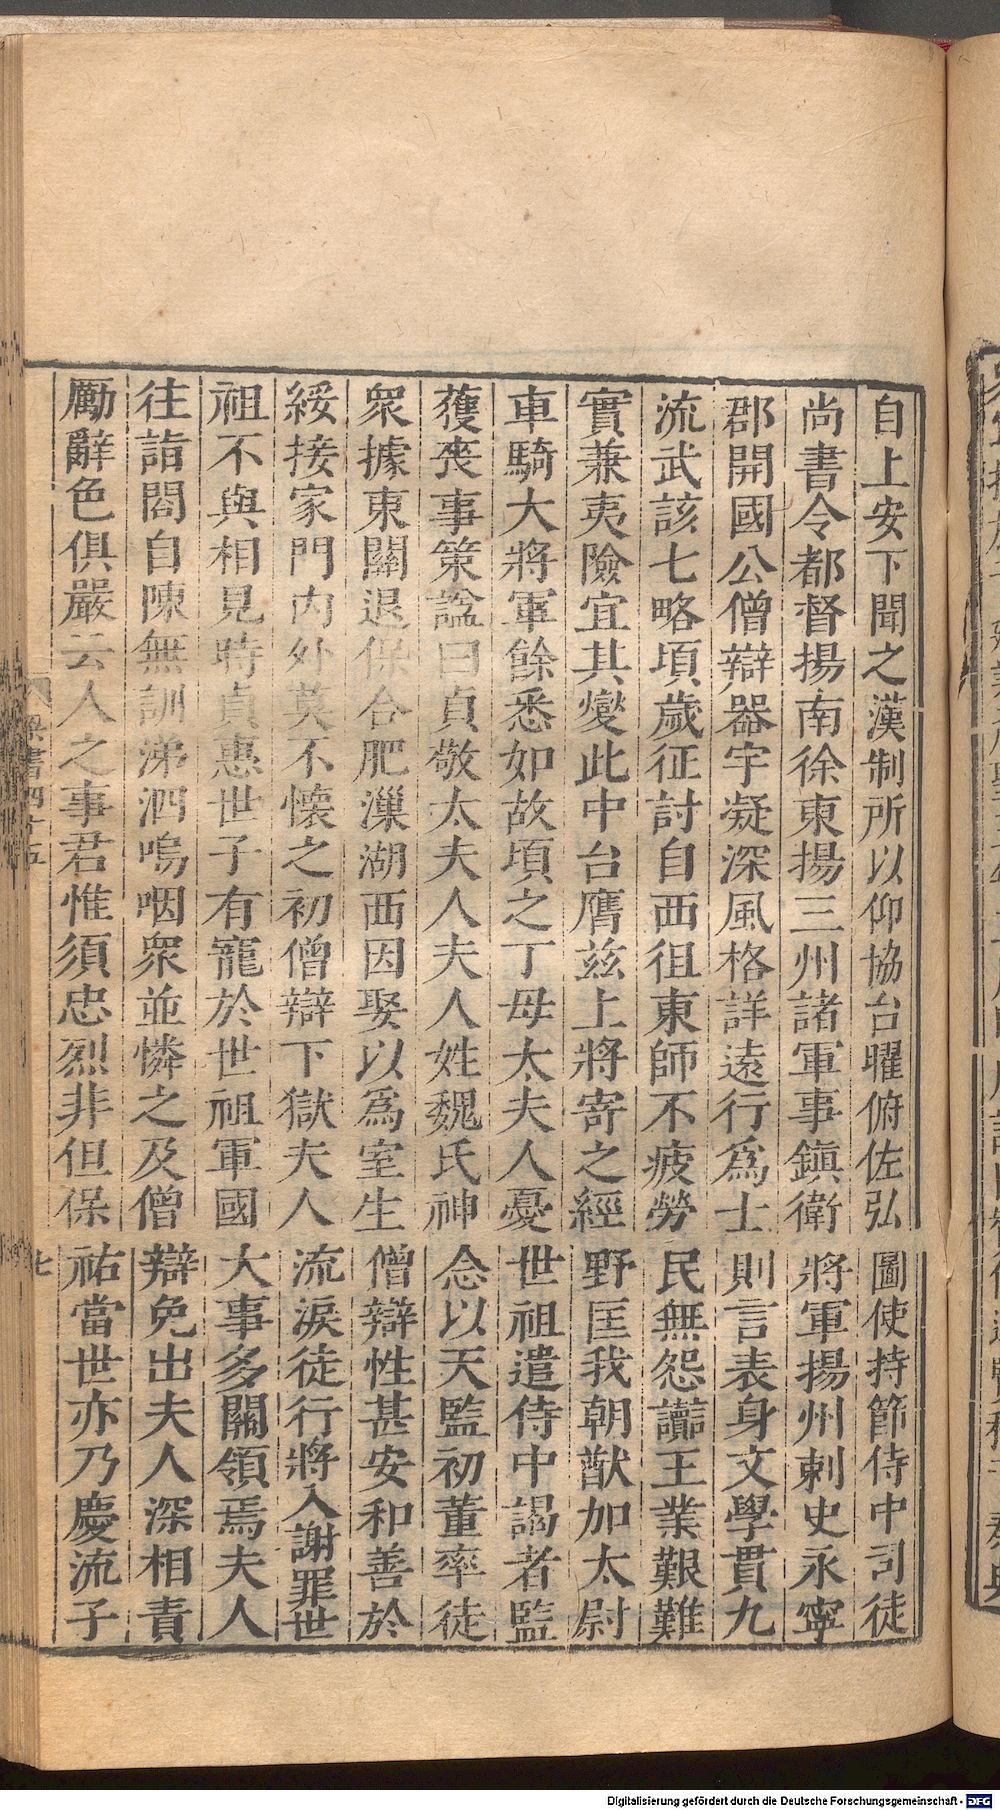 自上安下聞之漢制所以仰協台曜俯佐弘圖使持節侍中司徒
尚書令都督揚南徐東揚三州諸軍事鎭衛將軍揚州刺史永寧
郡開國公僧辯器宇凝深風格詳遠行爲士則言表身文學貫九
流武該七略項歲征討自西徂東師不疲勞民無怨讟王業艱難
實兼夷險宜其變此中台膺兹上將寄之經野匡我朝猷加太尉
車騎大將軍餘悉如故頃之丁母太夫人憂世祖遣侍中謁者監
䕶喪事策諡曰貞敬太夫人夫人姓魏氏神念以天監初董率徒
衆據東關退保合肥漅湖西因娶以爲室生僧辯性甚安和善於
綏接家門内外莫不懷之初僧辯下獄夫人流淚徒行將入謝罪世
祖不與相見時貞惠世子有寵於世祖軍國大事多關領焉夫人
往詣閤自陳無訓涕泗嗚咽衆並憐之及僧辯免出夫人深相責
勵辭色俱嚴云人之事君惟須忠烈非但保祐當世亦乃慶流子
梁書四十五
七
Digitalisierung gefördert durch die Deutsche Forschungsgemeinschaft - DFG